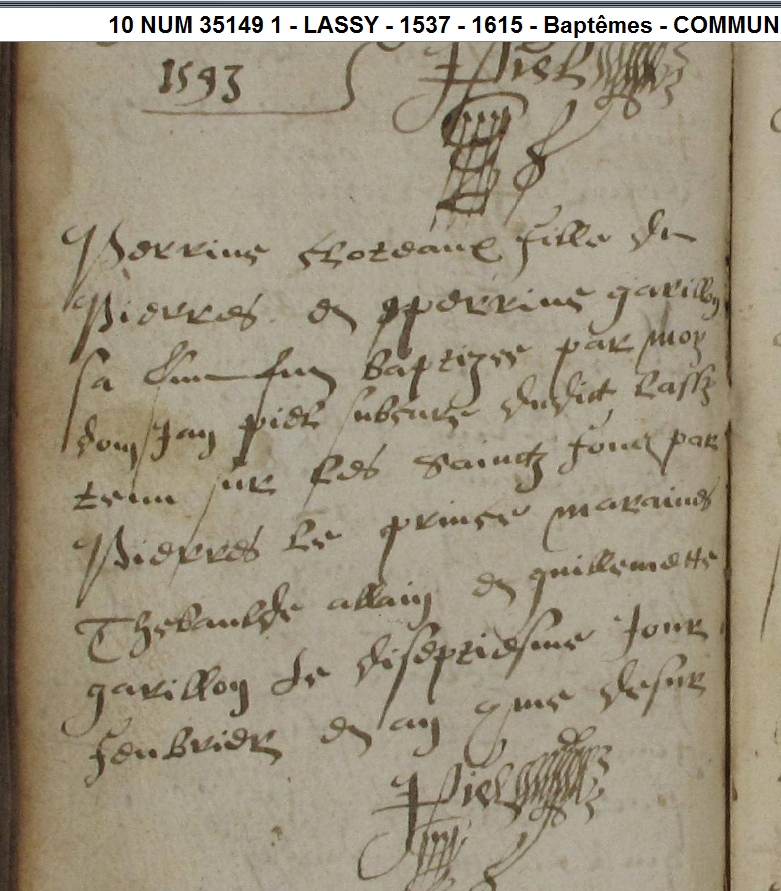 10 NUM 35149 1 - LASSY - 1537 - 1615 - Baptêmes - COMMUN
1593
Piel
Perrine Croteaux fille de
Pierres et perrine garillon
sa fem fut baptizee par moy
dom Jan piel subcure dudict Lassy
tenu sur les Sainctz fons par
Pierres Le prince maraines
Thebaulde allain et guillemette
garillon Le diseptiesme Jour
febvrier en an q me desur
Piel